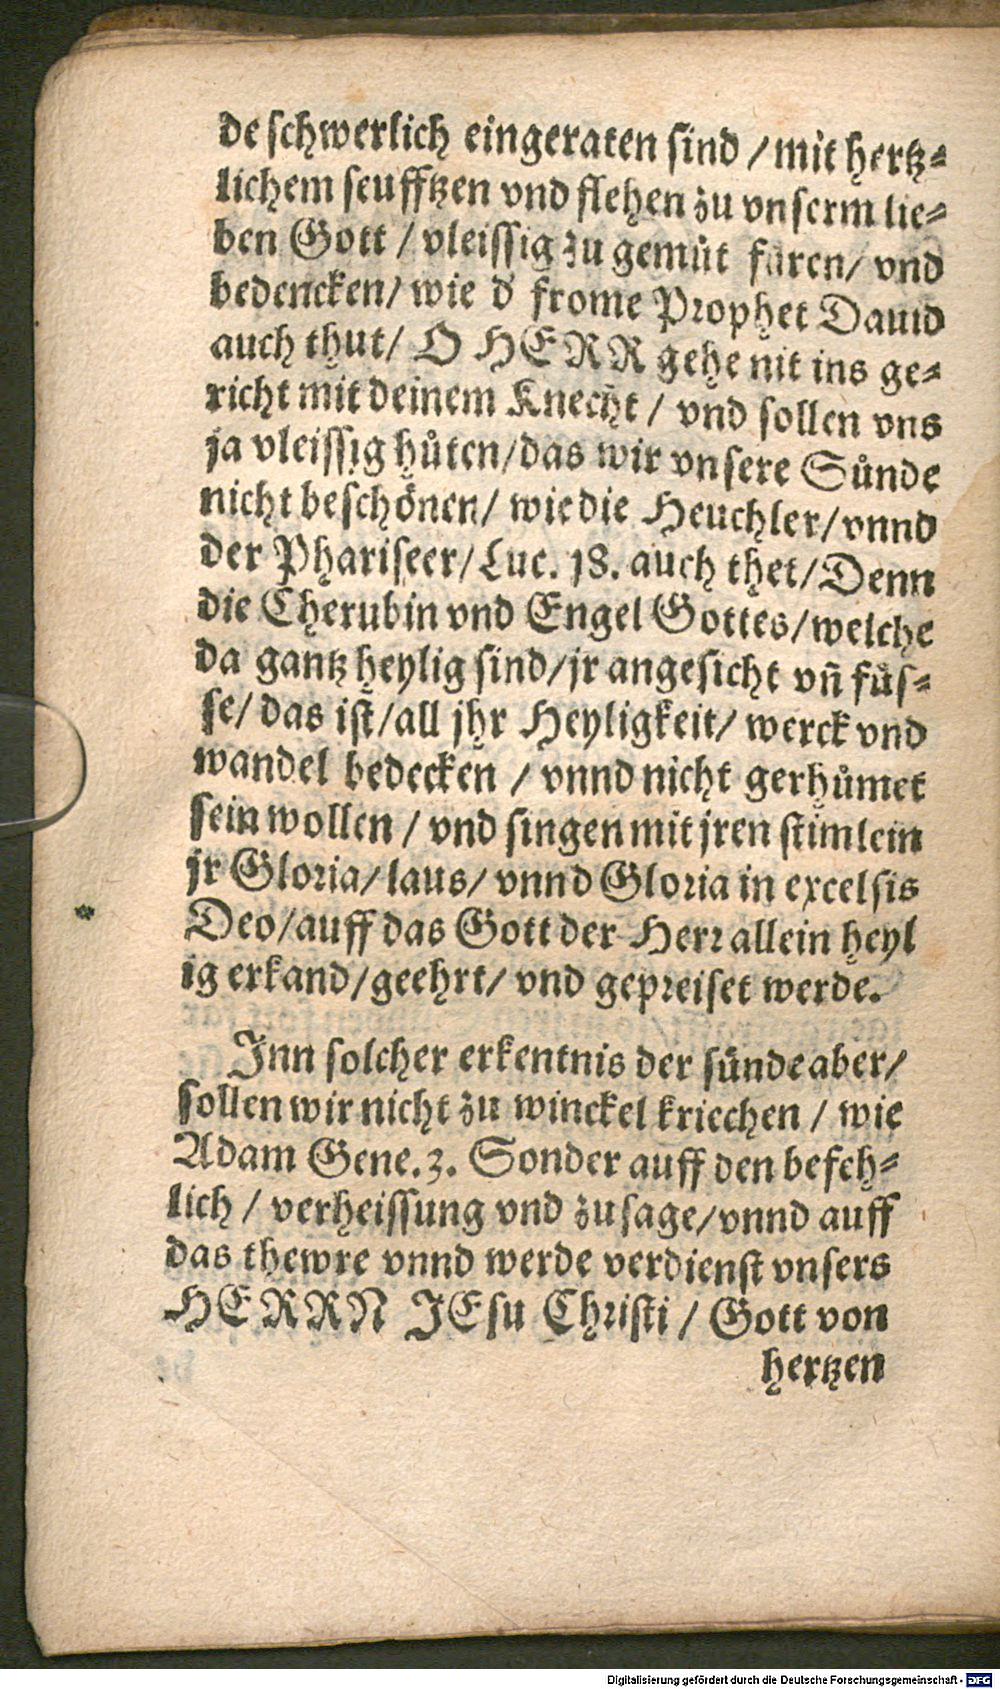 de schwerlich eingeraten sind / mit hertz⸗
lichem seufftzen vnd flehen zu vnserm lie⸗
ben Gott / vleissig zu gemuͤt fuͤren / vnd
bedencken / wie d' frome Prophet Dauid
auch thut / O HERR gehe nit ins ge⸗
richt mit deinem Knecht / vnd sollen vns
ja vleissig huͤten / das wir vnsere Suͤnde
nicht beschoͤnen / wie die Heuchler / vnnd
der Phariseer / Luc. 18. auch thet / Denn
die Cherubin vnd Engel Gottes / welche
da gantz heylig sind / jr angesicht vñ fuͤs⸗
se / das ist / all jhr Heyligkeit / werck vnd
wandel bedecken / vnnd nicht gerhuͤmet
sein wollen / vnd singen mit jren stimlein
jr Gloria / laus / vnnd Gloria in excelsis
Deo / auff das Gott der Herr allein heyl
ig erkand / geehrt / vnd gepreiset werde.
Inn solcher erkentnis der suͤnde aber /
sollen wir nicht zu winckel kriechen / wie
Adam Gene. 3. Sonder auff den befeh⸗
lich / verheissung vnd zusage / vnnd auff
das thewre vnnd werde verdienst vnsers
HERRN JEsu Christi / Gott von
hertzen
Digitalisierung gefördert durch die Deutsche Forschungsgemeinschaft - DFG